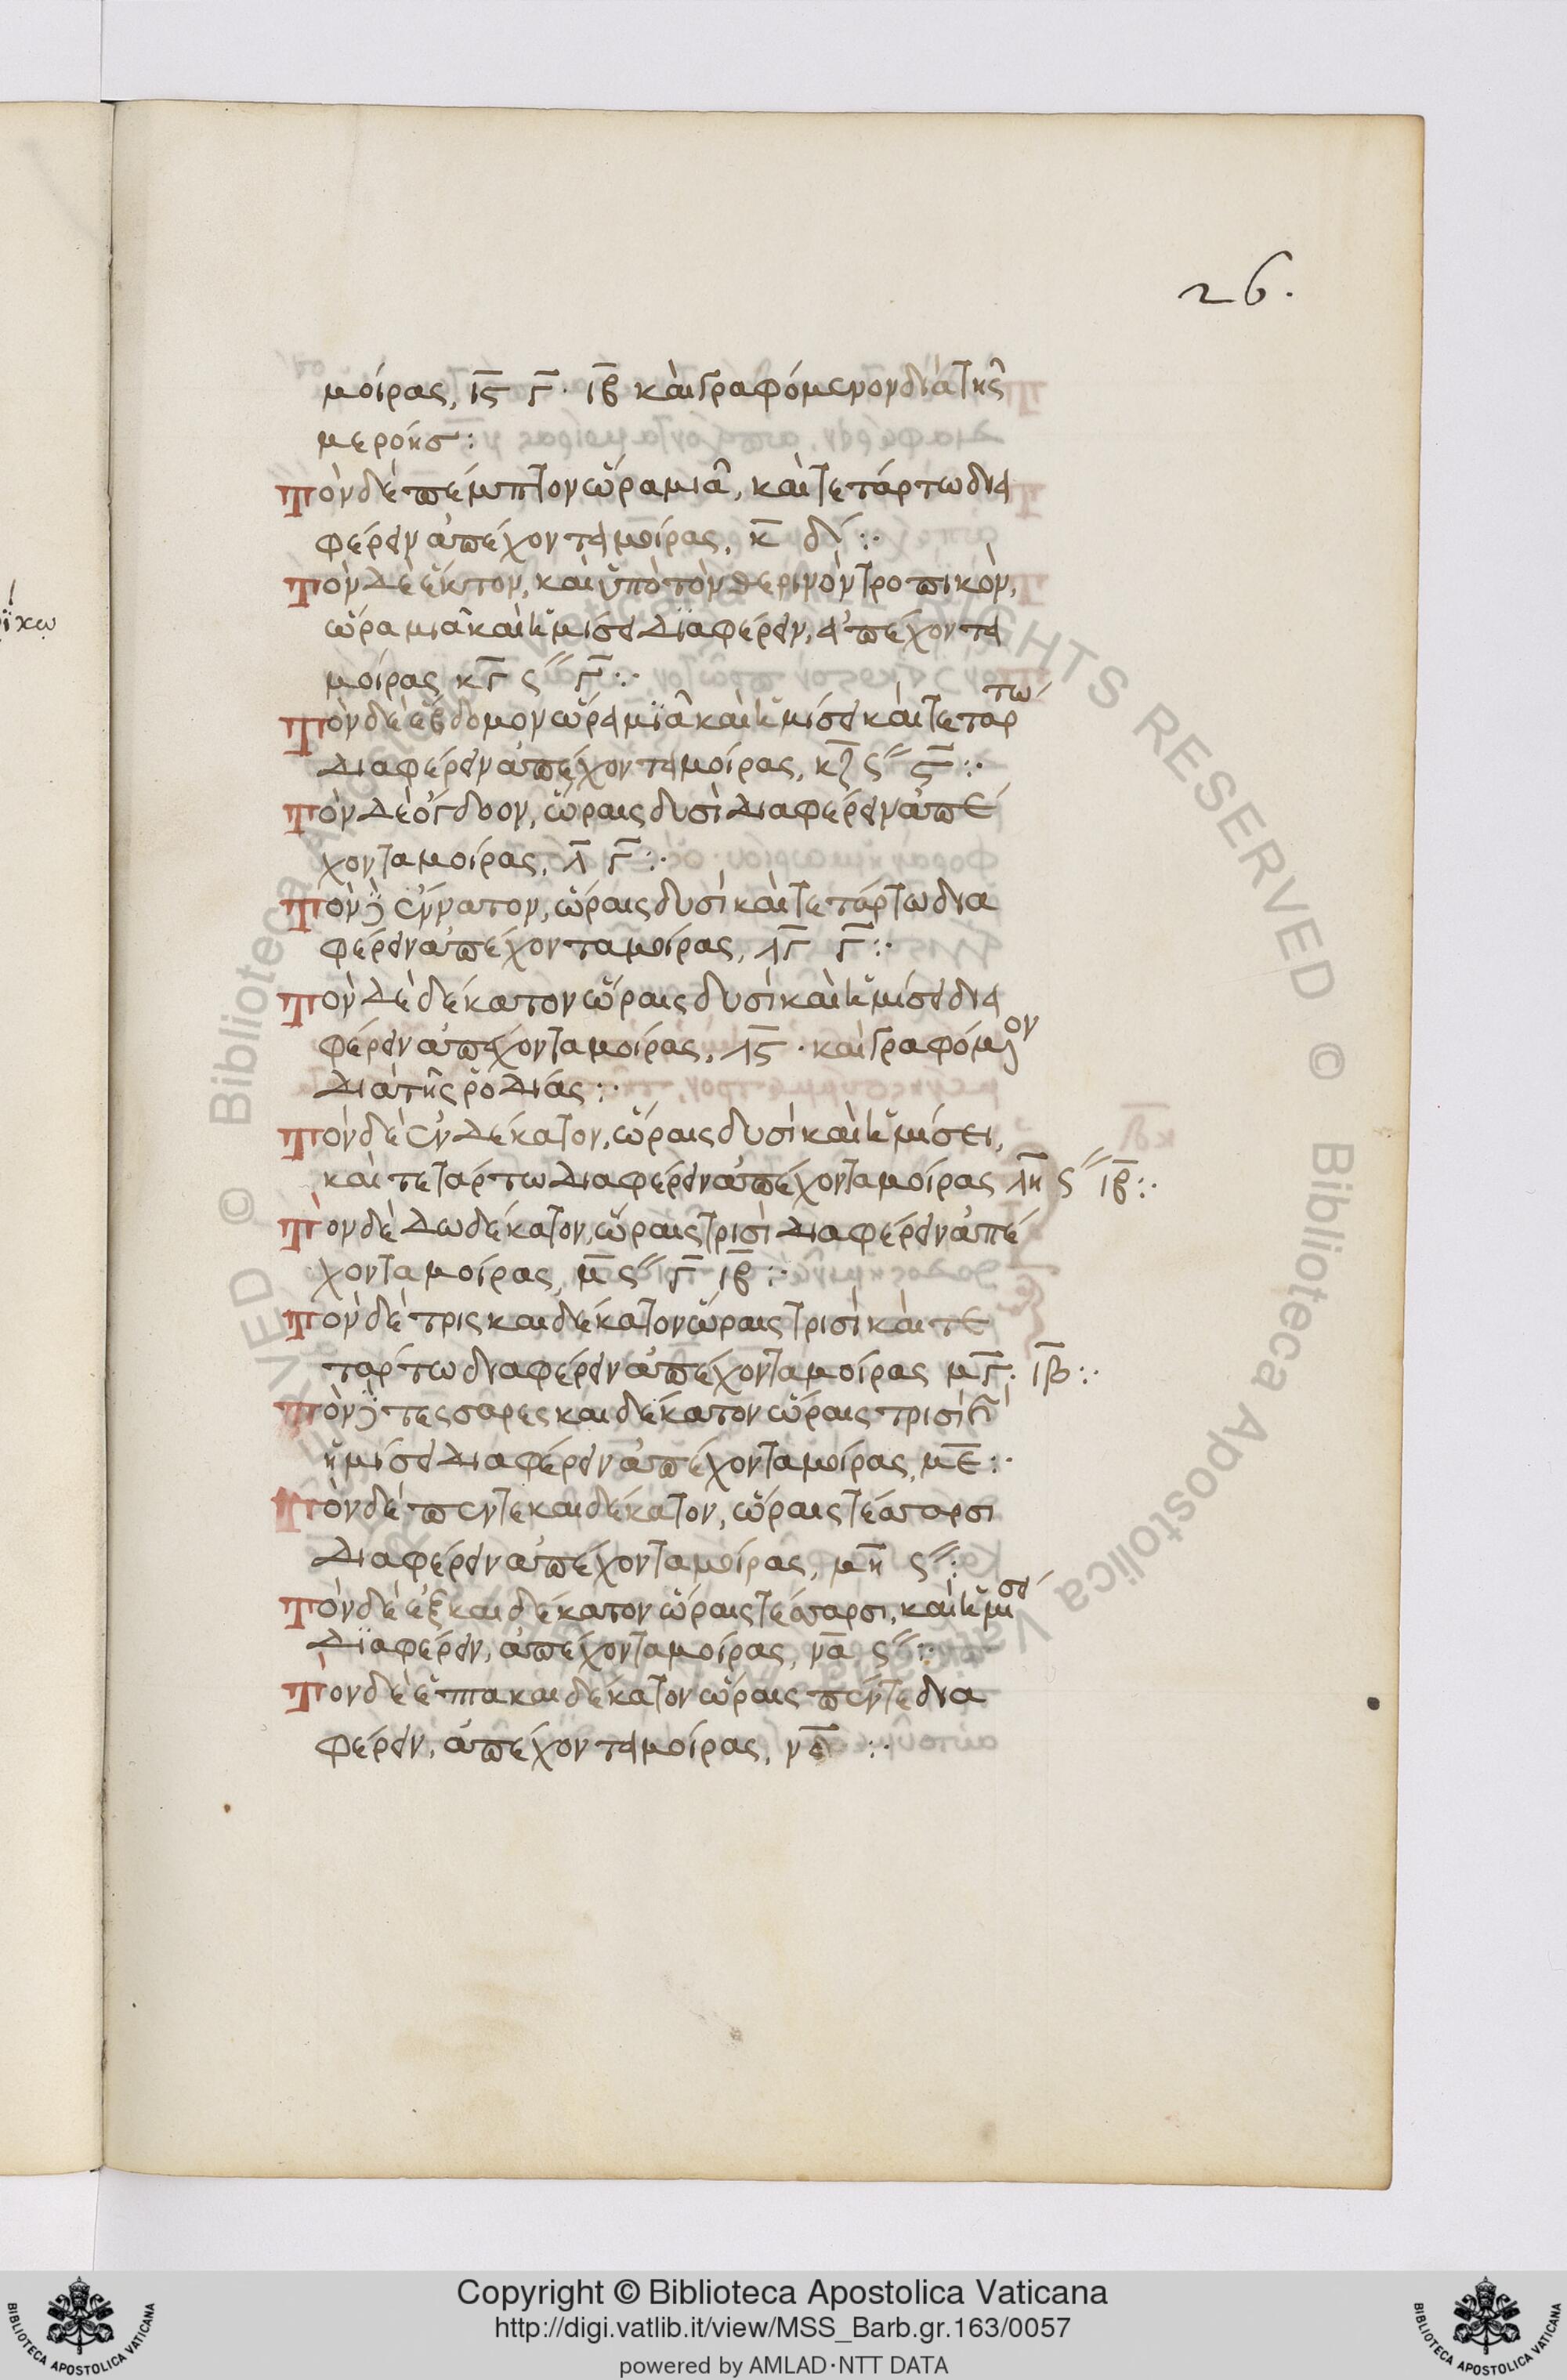 26.
μοίρας, ις̅ γ̅· ιβ̅ καὶ γραφόμενον διὰ τῆς
μερόης:
Τὸν δὲ πέμπτον ὥρα μιᾶ, καὶ τετάρτω δια
φέρειν ἀπέχοντα μοίρας, κ̅ δι̅ :·
Τὸν δὲ ἕκτον, καὶ ὑπὸ τὸν θερινὸν τροπικὸν,
ὥρα μιᾶ καὶ ἡμίσει διαφέρειν, ἀπέχοντα
μοίρας κγ̅ ς″ γ̅ :·
Τὸν δὲ ἕβδομον ὥρα μϊᾶ καὶ ἡμίσει καὶ τετάρτω
διαφέρειν ἀπέχοντα μοίρας, κζ̅ ς″ ς̅ :·
Τὸν δὲ ὄγδοον, ὥραις δυσὶ διαφέρειν ἀπέ
χοντα μοίρας, λ̅ γ̅ :·
Τὸν δὲ ἔννατον, ὥραις δυσὶ καὶ τετάρτω δια
φέρειν ἀπέχοντα μοίρας, λγ̅ γ̅ :·
Τὸν δὲ δέκατον ὥραις δυσὶ καὶ ἡμίσει δια
φέρειν ἀπέχοντα μοίρας, λς̅ · καὶ γραφόμενον
διὰ τῆς ῥοδιάς :·
Τὸν δὲ ἑνδέκατον, ὥραις δυσὶ καὶ ἡμίσει,
καὶ τετάρτω διαφέρειν ἀπέχοντα μοίρας λη̅ ς″ ιβ̅ :·
Τὸν δὲ δωδέκατον, ὥραις τρισὶ διαφέρειν ἀπέ
χοντα μοίρας, μ̅ ς″ γ̅ ιβ̅ :·
Τὸν δὲ τρισκαιδέκατον ὥραις τρισὶ καὶ τε
τάρτω διαφέρειν ἀπέχοντα μοίρας μγ̅· ιβ̅ :·
Τὸν δὲ τεσσαρεσκαιδέκατον ὥραις τρισὶ καὶ
ἡμίσει διαφέρειν ἀπέχοντα μοίρας, με̅ :·
Τὸν δὲ πεντεκαιδέκατον, ὥραις τέσσαρσι
διαφέρειν ἀπέχοντα μοίρας, μη̅ ς″ :
Τὸν δὲ ἑξκαιδέκατον ὥραις τέσσαρσι, καὶ ἡμίσει
δϊαφέρειν, ἀπέχοντα μοίρας, να̅ ς″ :·
Τὸν δὲ ἑπτακαιδέκατον ὥραις πέντε δια
φέρειν, ἀπέχοντα μοίρας, νδ̅ :·
© Biblioteca Apostolica Vaticana
ALL RIGHTS RESERVED
Copyright © Biblioteca Apostolica Vaticana
http://digi.vatlib.it/view/MSS_Barb.gr.163/0057
powered by AMLAD·NTT DATA
BIBLIOTECA APOSTOLICA VATICANA
BIBLIOTECA APOSTOLICA VATICANA